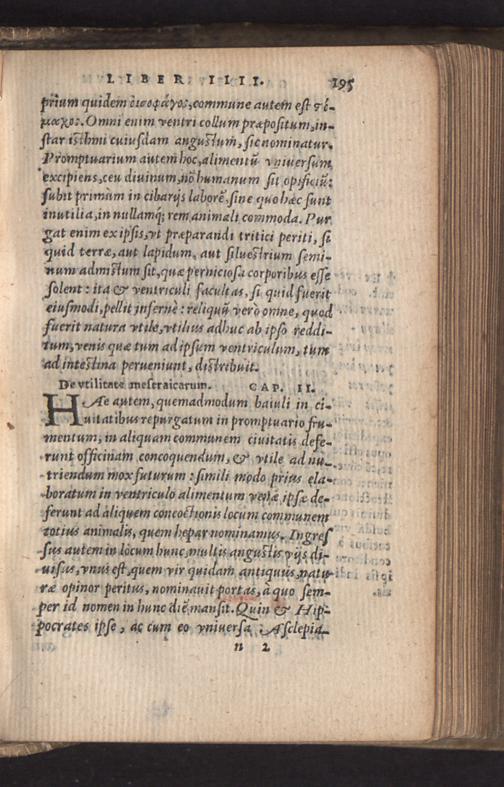 LIBER IIII. 195
prium quidem οἰσοφάγος, commune autem est στό-
μαχος. Omni enim ventri collum præpositum, in-
star isthmi cuiusdam angustum, sic nominatur.
Promptuarium autem hoc, alimentū vniuersum
excipiens, ceu diuinum, nō humanum sit opificiū:
subit primùm in cibarijs laborē, sine quo hæc sunt
inutilia, in nullamq; rem animali commoda. Pur
gat enim ex ipsis, vt præparandi tritici periti, si
quid terræ, aut lapidum, aut siluestrium semi-
num admistum sit, quæ perniciosa corporibus esse
solent: ita & ventriculi facultas, si quid fuerit
eiusmodi, pellit infernè: reliquū verò omne, quod
fuerit natura vtile, vtilius adhuc ab ipso reddi-
tum, venis quæ tum ad ipsum ventriculum, tum
ad intestina perueniunt, distribuit.
De vtilitate meseraicarum. CAP. II.
HAe autem, quemadmodum baiuli in ci-
uitatibus repurgatum in promptuario fru-
mentum, in aliquam communem ciuitatis defe-
runt officinam concoquendum, & vtile ad nu-
triendum mox futurum: simili modo prius ela-
boratum in ventriculo alimentum venæ ipsæ de-
ferunt ad aliquem concoctionis locum communem
totius animalis, quem hepar nominamus. Ingres
sus autem in locum hunc, multis angustis vijs di-
uisus, vnus est, quem vir quidam antiquus, natu-
ræ opinor peritus, nominauit portas, à quo sem-
per id nomen in hunc diē mansit. Quin & Hip-
pocrates ipse, ac cum eo vniuersa Asclepia-
n 2